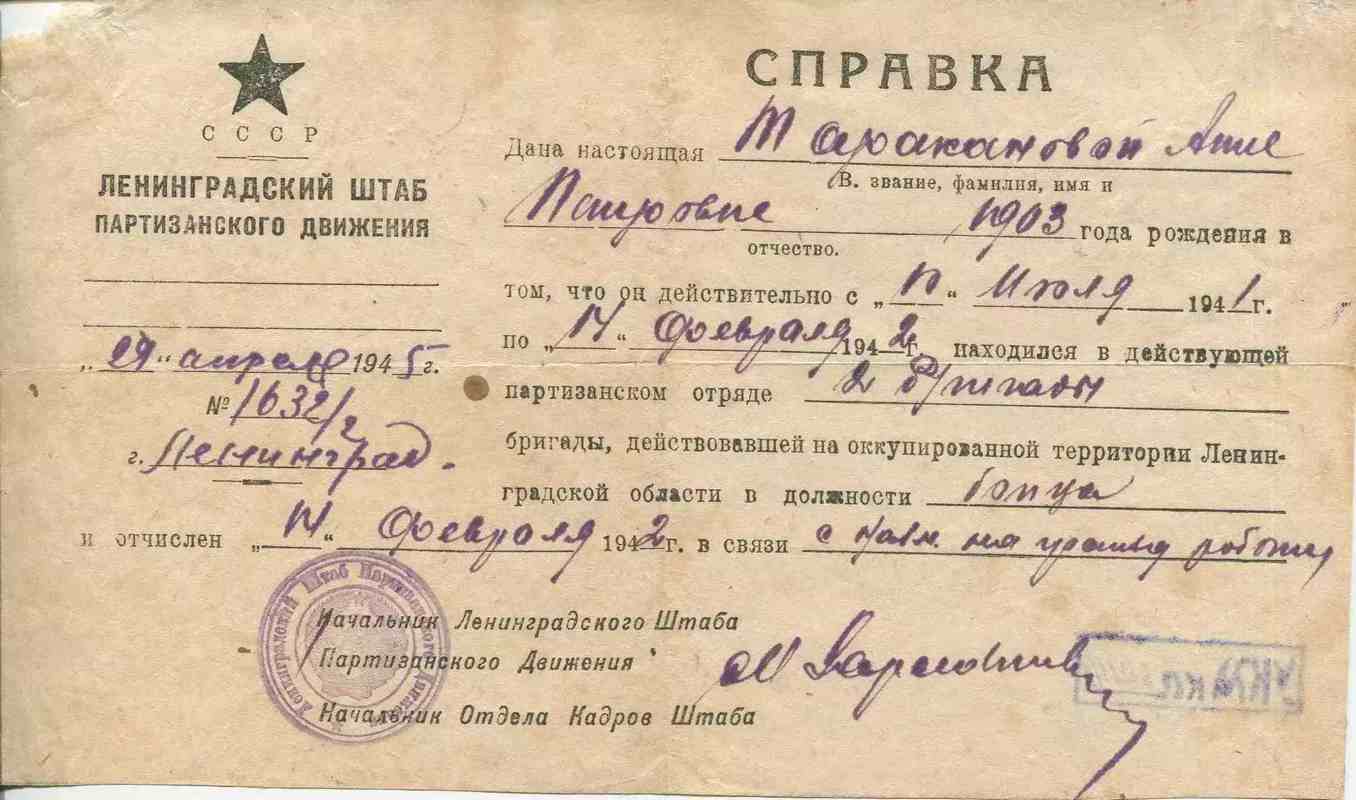 СССР
ЛЕНИНГРАДСКИЙ ШТАБ
ПАРТИЗАНСКОГО ДВИЖЕНИЯ
апреля 1945 г.
№ 1632/2
г. Ленинград.
СПРАВКА
Дана настоящая Таракановой Анне
В. звание, фамилия, имя и
Петровне 1903 года рождения в
отчество.
том, что он действительно с „10“ Июля 1941 г.
по „14“ февраля 1942 г. находился в действующей
партизанском отряде 2 бригады
бригады, действовавшей на оккупированной территории Ленин-
градской области в должности бойца
и отчислен „14“ февраля 1942 г. в связи с на
Начальник Ленинградского Штаба
Партизанского Движения
Начальник Отдела Кадров Штаба
Ленинградский Штаб Партизанского Движения